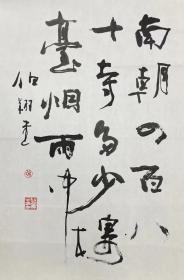 南朝四百八
十寺多少樓
臺烟雨中
伯翔